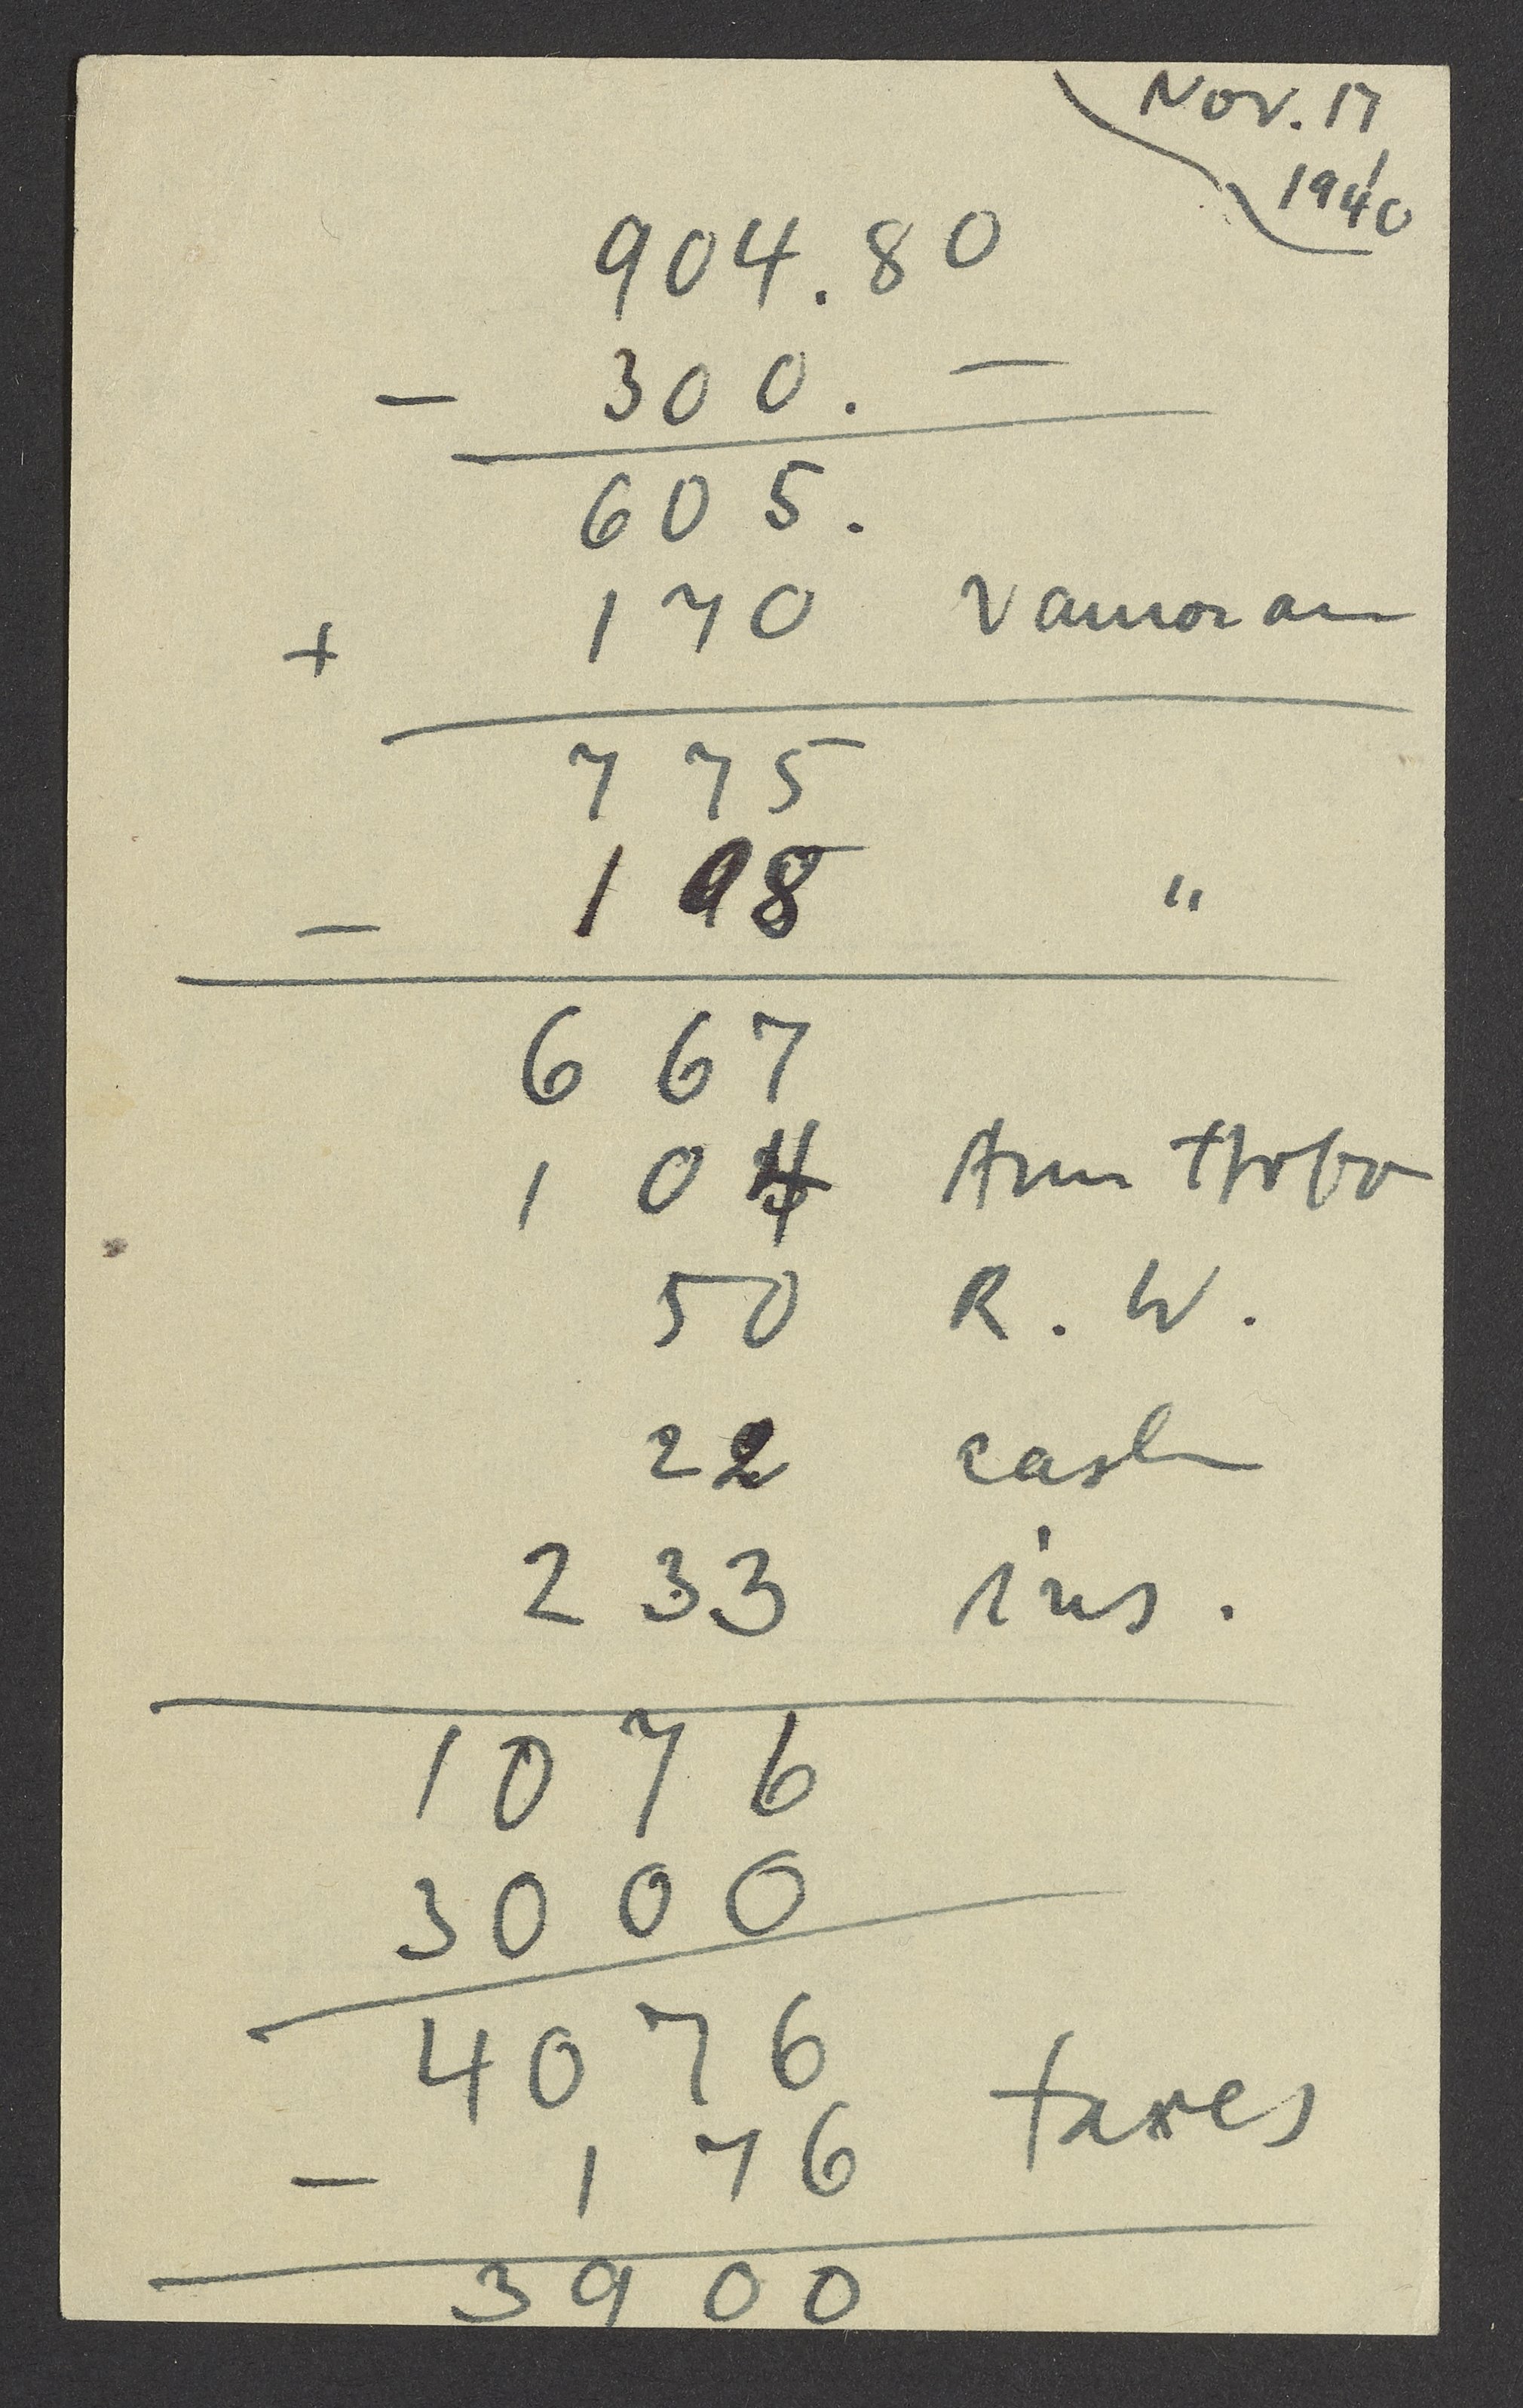 Nov. 17
1940
904.80
- 300. —
605.
+ 170
775
- 198 "
667
104
50 R. W.
22 cash
233 ins.
1076
3000
4076
- 176 taxes
3900